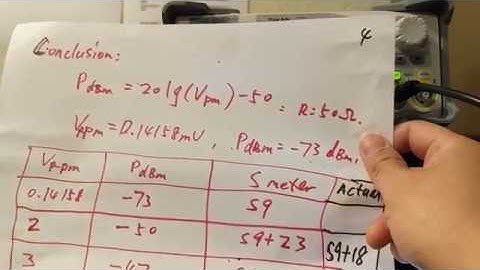 4
Conclusion:
PdBm = 20lg(Vpm) - 50 : R=50Ω.
Vppm = 0.14158mV, PdBm = -73 dBm,
Vppm PdBm S meter Actual
0.14158 -73 S9
2 -50 S9+23 S9+18
3 -47